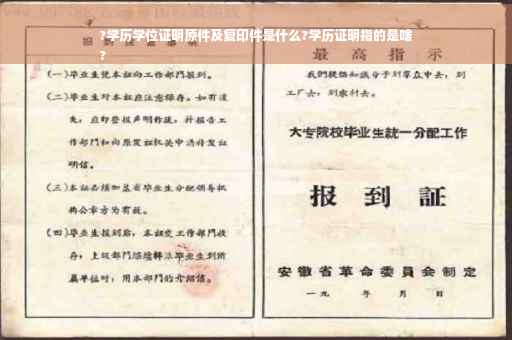 ?学历学位证明原件及复印件是什么?学历证明指的是啥
?
(一)毕业生凭本证向工作部门报到。
(二)毕业生对本证应注意保存。如有遗
失,应即登报声明作废,并报告工
作部门和向原发证机关申请补发证
明信。
(三)本证必须加盖省毕业生分配领导机
构公章方为有效。
(四)毕业生报到后,本证交工作部门收
存;上级部门 毕业生到所
属单位时,用本部门的介绍信。
最高指示
我们提倡知识分子到群众中去,到
工厂去,到农村去。
大专院校毕业生統一分配工作
报到証
安徽省革命委員会制定
一九 年 月 日